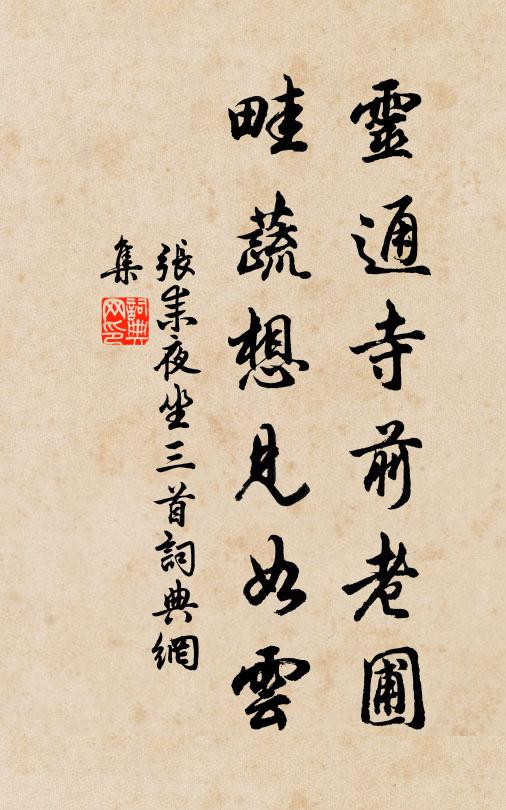 靈通寺前老圃
畦蔬想見如雲
張耒夜坐三首詞典網
集
詞典网印